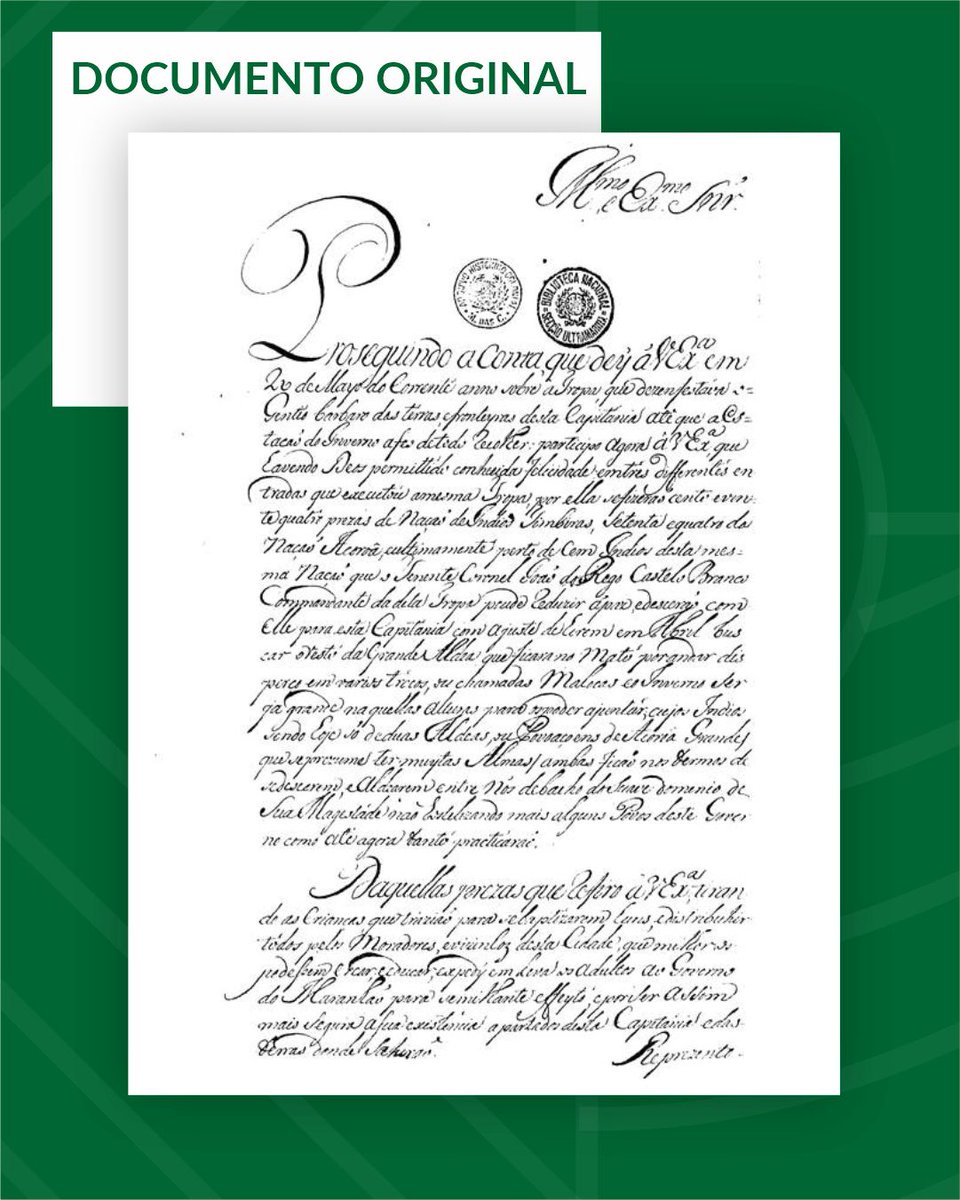 DOCUMENTO ORIGINAL
Illmo e Exmo Snr.
ARQUIVO HISTORICO COLONIAL
BIBLIOTECA NACIONAL
SECÇÃO ULTRAMARINA
Proseguindo a Conta que dey á V Exa em
de Mayo do Corrente anno sobre a Tropa que dezenfestava o
Gentio barbaro das terras e fronteyras desta Capitania até que a Es-
taçaõ do Inverno a fes de todo recolher: participo agora á V Exa que
havendo Deos permittido conhecida felicidade em tres differentes en
tradas que executou a mesma Tropa, por ella se fizeraõ cento e vin-
te quatro prezas de Naçaõ de Indios Timbiras, setenta e quatro da
Naçaõ Acoroâ, e ultimamente perto de Cem Indios desta mes-
ma Naçaõ que o Tenente Coronel Joaõ do Rego Castelo Branco
Commandante da dita Tropa pude reduzir á paz, e desceraõ com
elle para esta Capitania com ajuste de hirem em Abril bus
car o resto da Grande Aldea que ficara no Mato por andar dis
perço em varios troços, ou chamadas Malocas e o Inverno ser
já grande naquellas alturas para se poder ajuntar, cujos Indios
sendo hoje só de duas Aldeas, ou Povoaçoens de Acoroâ Grandes
que se prezume ter muytas Almas/ ambas ficaõ nos termos de
se descerem, e Aldearem entre Nós debaixo do suave dominio de
Sua Magestade naõ hostilizando mais alguns Povos deste Gover
no como até agora tanto practicaraõ.
Daquellas prezas que refiro á V Exa, tiran
do as Crianças que traziaõ para se baptizarem huns, e distribuhir
todos pelos Moradores, e vizinhos desta Cidade, que milhor os
podessem criar, e educar, expedy em leva os adultos ao Governo
do Maranhaõ para semilhante effeyto, e por ser assim
mais segura a sua existencia apartados desta Capitania e das
terras donde sahiraõ.
Reprezento-